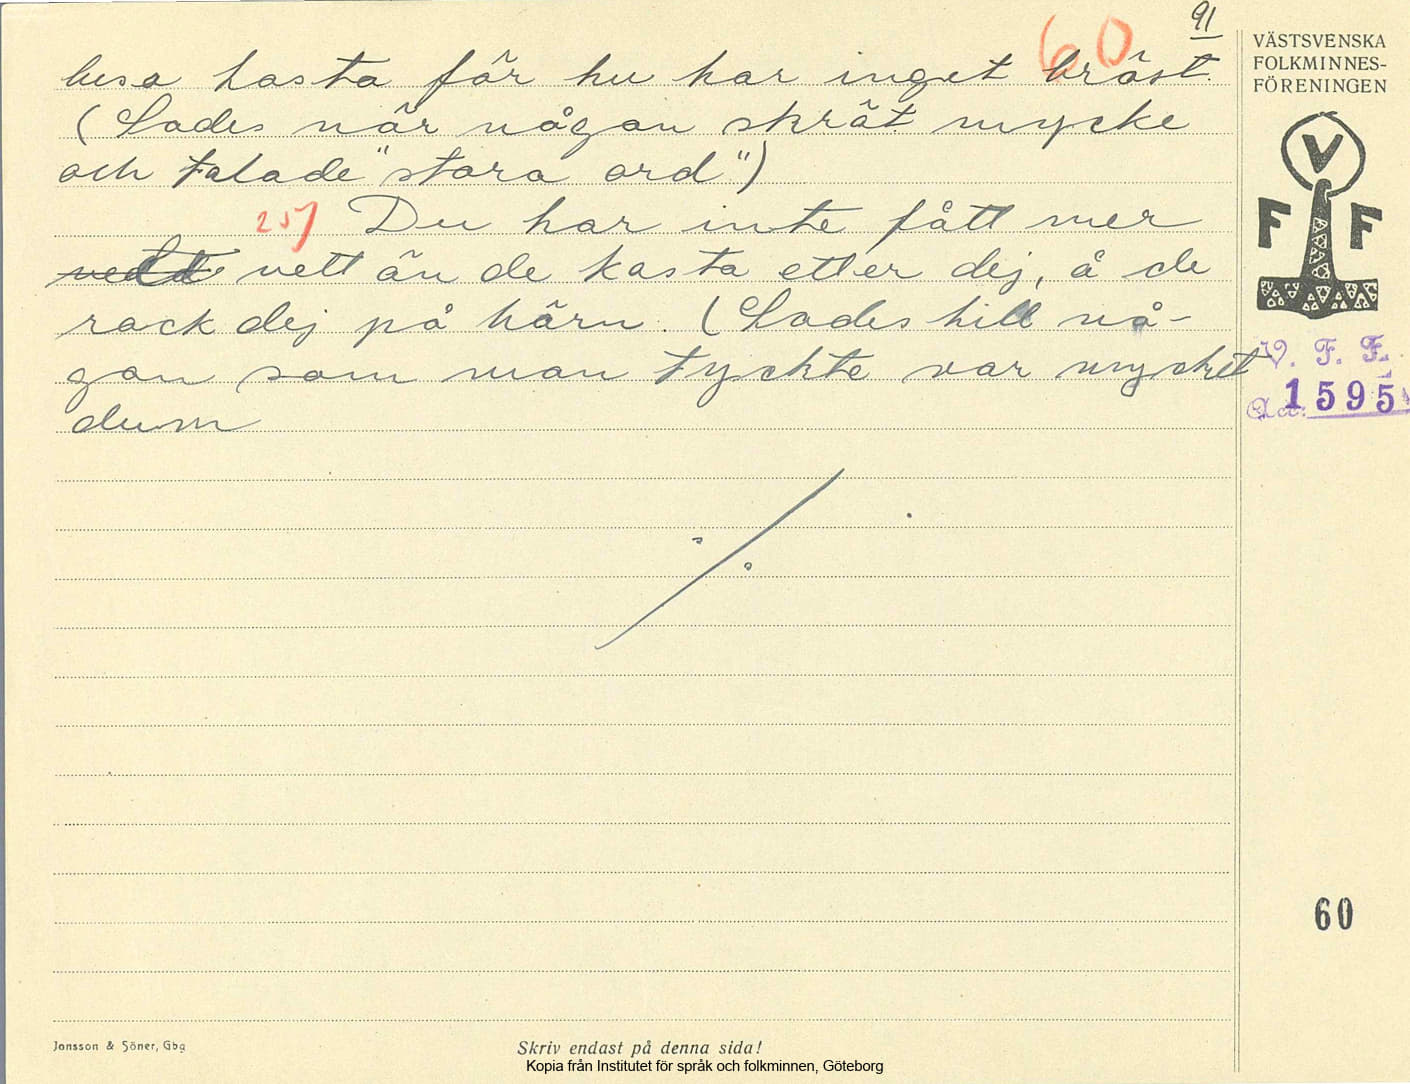 91
60
lusa hosta för hu har inget bröst.
(Sades när någon skröt mycke
och talade "stora ord")
257 Du har inte fått mer
vett än de kasta etter dej, å de
rack dej på härn. (Sades till nå-
gon som man tyckte var mycket
dum
VÄSTSVENSKA
FOLKMINNES-
FÖRENINGEN
V
F F
V. F. F.
Acc: 1595
60
Jonsson & Söner, Gbg
Skriv endast på denna sida!
Kopia från Institutet för språk och folkminnen, Göteborg